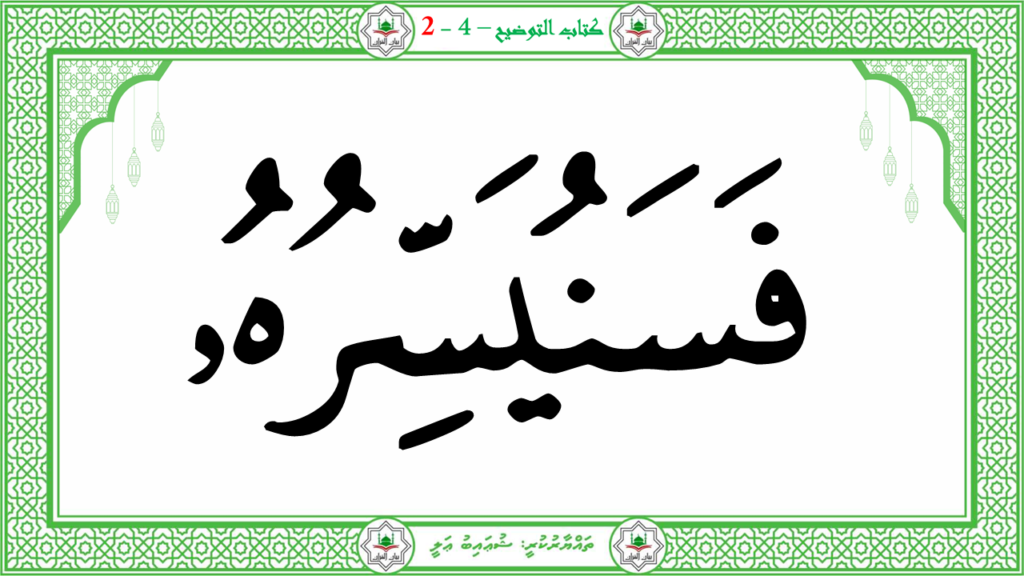 كتاب التوضيح – 4 - 2
فَسَنُيَسِّرُهُۥ
ތައްޔާރުކުރީ: ޝުޢައިބު ޢަލީ